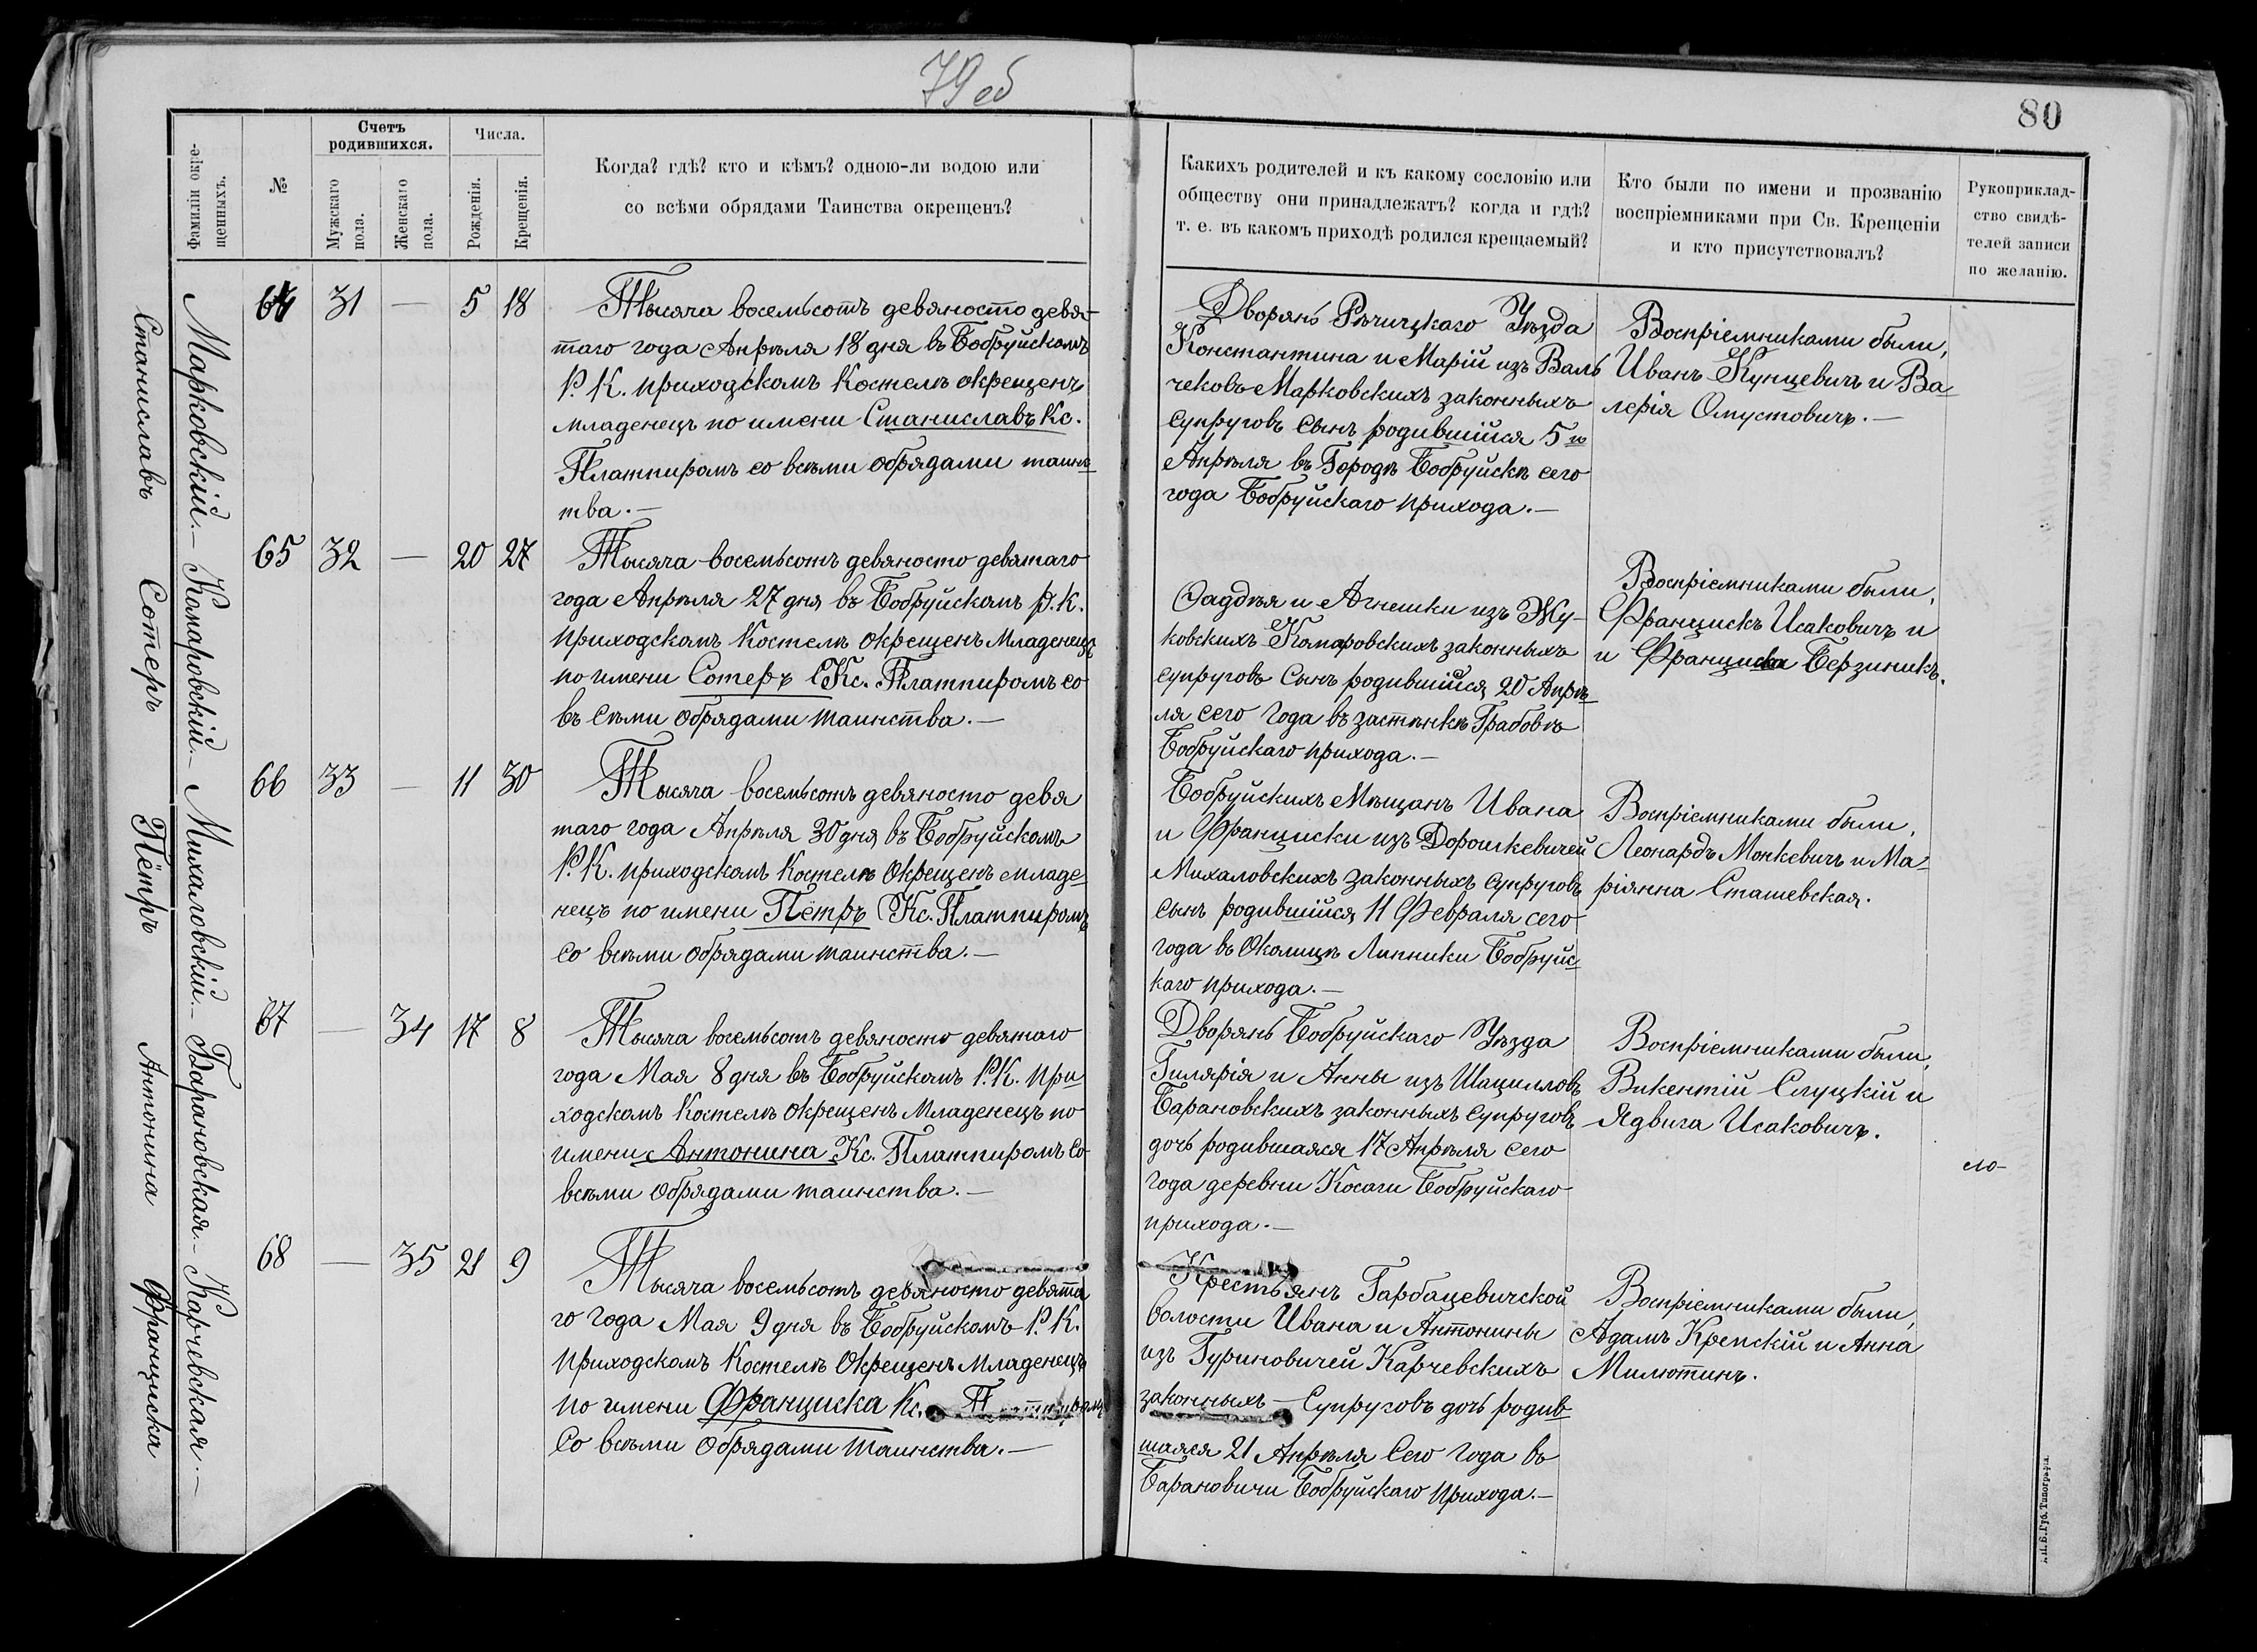 79 об
80
Фамиліи окре-
щенныхъ.
№
Счетъ
родившихся.
Мужскаго
пола.
Женскаго
пола.
Числа.
Рожденія.
Крещенія.
Когда? гдѣ? кто и кѣмъ? одною-ли водою или
со всѣми обрядами Таинства окрещенъ?
Какихъ родителей и къ какому сословію или
обществу они принадлежатъ? когда и гдѣ?
т. е. въ какомъ приходѣ родился крещаемый?
Кто были по имени и прозванію
воспріемниками при Св. Крещеніи
и кто присутствовалъ?
Рукоприклад-
ство свидѣ-
телей записи
по желанію.
Марковскій. —
Станиславъ
64 31 — 5 18
Тысяча восемьсотъ девяносто девя-
таго года Апрѣля 18 дня въ Бобруйскомъ
Р. К. приходскомъ Костелѣ окрещенъ
младенецъ по имени Станиславъ Кс.
Платпиромъ со всѣми обрядами таинс
тва. —
Дворянъ Рѣчицкаго Уѣзда
Константина и Маріи изъ Валь
чековъ Марковскихъ законныхъ
супруговъ сынъ родившійся 5го
Апрѣля въ Городѣ Бобруйскѣ сего
года Бобруйскаго прихода. —
Воспріемниками были,
Иванъ Кунцевичъ и Ва-
лерія Омустовичъ. —
Комаровскій. —
Сотеръ
65 32 — 20 27
Тысяча восемьсотъ девяносто девятаго
года Апрѣля 27 дня въ Бобруйскомъ Р. К.
приходскомъ Костелѣ окрещенъ Младенецъ
по имени Сотеръ Кс. Платпиромъ со
въ сѣми обрядами таинства. —
Фаддѣя и Агнешки изъ Жу-
ковскихъ Комаровскихъ законныхъ
супруговъ Сынъ родившійся 20 Апрѣ
ля сего Года въ застѣнкѣ Грабовѣ
Бобруйскаго прихода. —
Воспріемниками были,
Францискъ Исаковичъ и
и Франциска Берзиникъ.
Михаловскій. —
Пётръ
66 33 — 11 30
Тысяча восемьсотъ девяносто девя
таго года Апрѣля 30 дня въ Бобруйскомъ
Р. К. приходскомъ Костелѣ Окрещенъ младе-
нецъ по имени Пётръ Кс. Платпиромъ
со всѣми обрядами таинства. —
Бобруйскихъ Мѣщанъ Ивана
и Франциски изъ Дорошкевичей
Михаловскихъ законныхъ супруговъ
сынъ родившійся 11 Февраля сего
года въ Околицѣ Липники Бобруйс
каго прихода. —
Воспріемниками были,
Леонардъ Монкевичъ и Ма-
ріянна Сташевская.
Барановская. —
Антонина
67 — 34 17 8
Тысяча восемьсотъ девяносто девятаго
года Мая 8 дня въ Бобруйскомъ Р.К. при
ходскомъ Костелѣ Окрещенъ Младенецъ по
имени Антонина Кс. Платпиромъ со
всѣми обрядами таинства. —
Дворянъ Бобруйскаго Уѣзда
Гилярія и Анны изъ Шацилловъ
Барановскихъ законныхъ супруговъ
дочь родившаяся 17 Апрѣля сего
года деревни Косаги Бобруйскаго
прихода. —
Воспріемниками были,
Викентій Слуцкій и
Ядвига Исаковичъ.
Карчевская —
Франциска
68 — 35 21 9
Тысяча восемьсотъ девяносто девята
го года Мая 9 дня въ Бобруйскомъ Р. К.
приходскомъ Костелѣ Окрещенъ Младенецъ
по имени Франциска Кс.
Со всѣми обрядами таинства. —
Крестьянъ Гарбацевичской
волости Ивана и Антонины
изъ Гуриновичей Карчевскихъ
законныхъ — Супруговъ дочь родив
шаяся 21 Апрѣля Сего Года въ
Барановичи Бобруйскаго прихода. —
Воспріемниками были,
Адамъ Крепскій и Анна
Милютинъ.